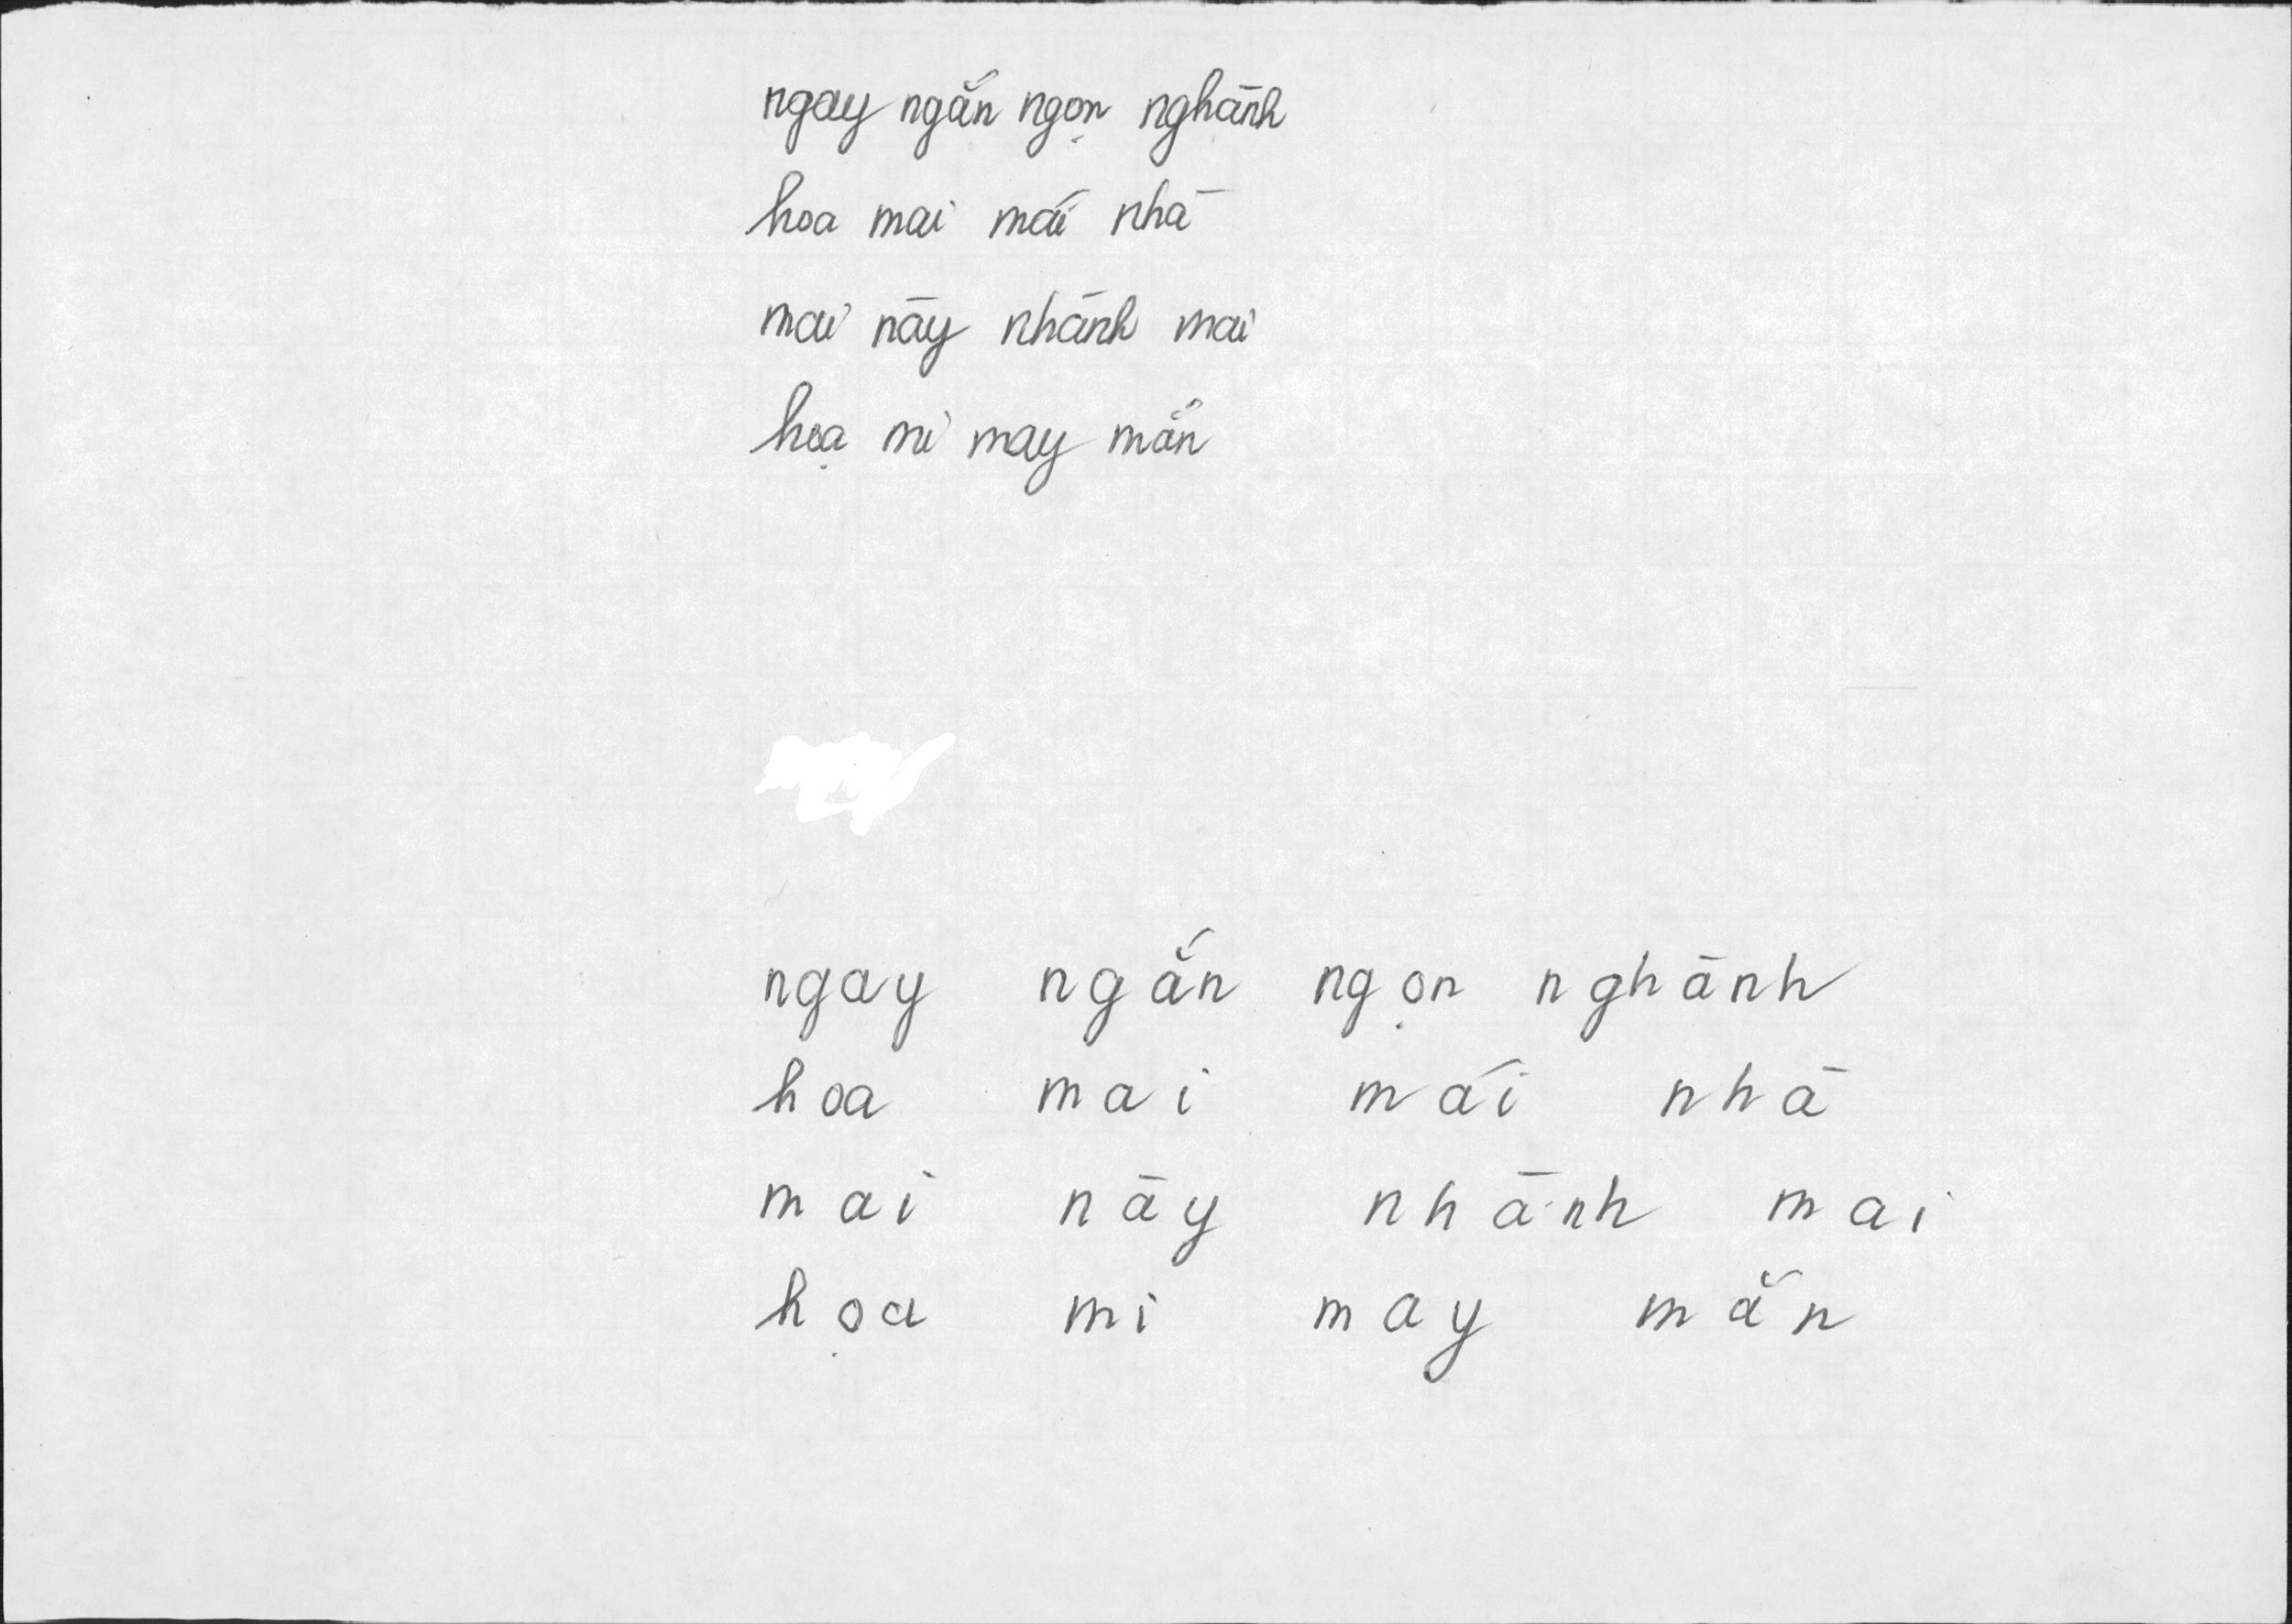 ngay ngắn ngọn nghành
hoa mai mái nhà
mai này nhành mai
họa mi may mắn
ngay ngắn ngọn nghành
hoa mai mái nhà
mai này nhành mai
họa mi may mắn